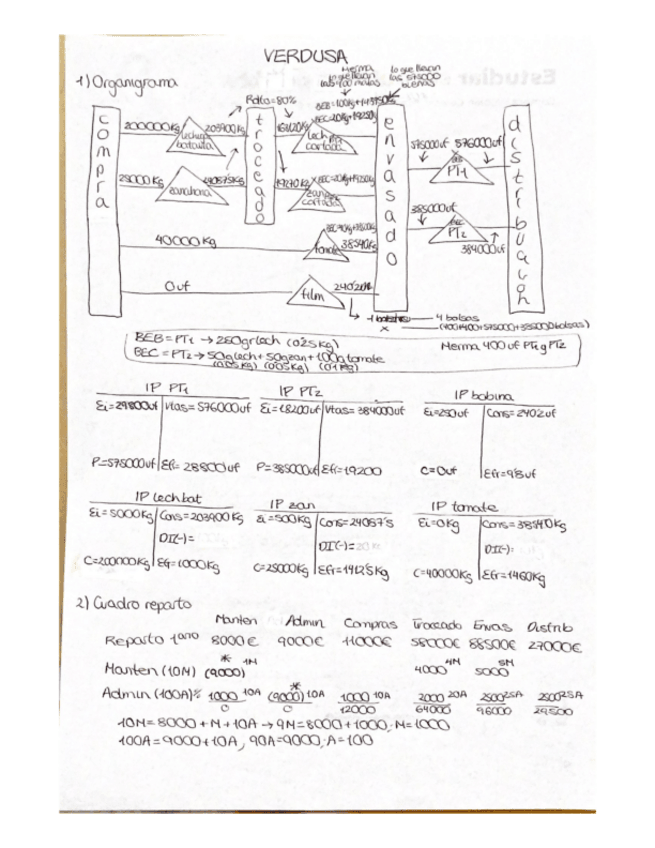 VERDUSA
1) Organigrama
Merma
lo que llevan
las 400 malas
lo que llevan
las 575000
buenas
Rdto=80%
compra
200000Kg
203900Kg
lechuga
batavia
25000Kg
zanahoria
troceado
lechuga
cortada
zana
cortada
40000 Kg
38540Kg
0uf
film
envasado
575000uf
576000uf
PT1
385000uf
PT2
384000uf
distribución
4 bolsas
x
BEB=PT1 → 250gr lech (0'25Kg)
BEC=PT2 → 50g lech+50gzan+100g tomate
(0'05Kg) (0'05Kg) (0'1Kg)
Merma 400 uf PT1 y PT2
IP PT1
Ei=29800uf Vtas=576000uf
P=575000uf Ef=28800uf
IP PT2
Ei=18200uf Vtas=384000uf
P=385000uf Ef=19200
IP bobina
Ei=250uf Cons=2402uf
C=0uf Efr=98uf
IP lechbat
Ei=5000Kg Cons=203900Kg
DI(-)=
C=200000Kg Ef=1000Kg
IP zan
Ei=500Kg Cons=24087'5
DI(-)=
C=25000Kg Efr=1412'5Kg
IP tomate
Ei=0Kg Cons=38540Kg
DI(-)=
C=40000Kg Efr=1460Kg
2) Cuadro reparto
Manten Admin Compras Troceado Envas Distrib
Reparto 1ario 8000€ 9000€ 11000€ 58000€ 88500€ 27000€
Manten (10M) (9000)* 1M 4000 4M 5000 5M
Admin (100A)% 1000 10A (9000)* 10A 1000 10A 2000 20A 2500 25A 2500 25A
0 0 12000 64000 96000 29500
10M=8000+M+10A → 9M=8000+1000; M=1000
100A=9000+10A, 90A=9000; A=100